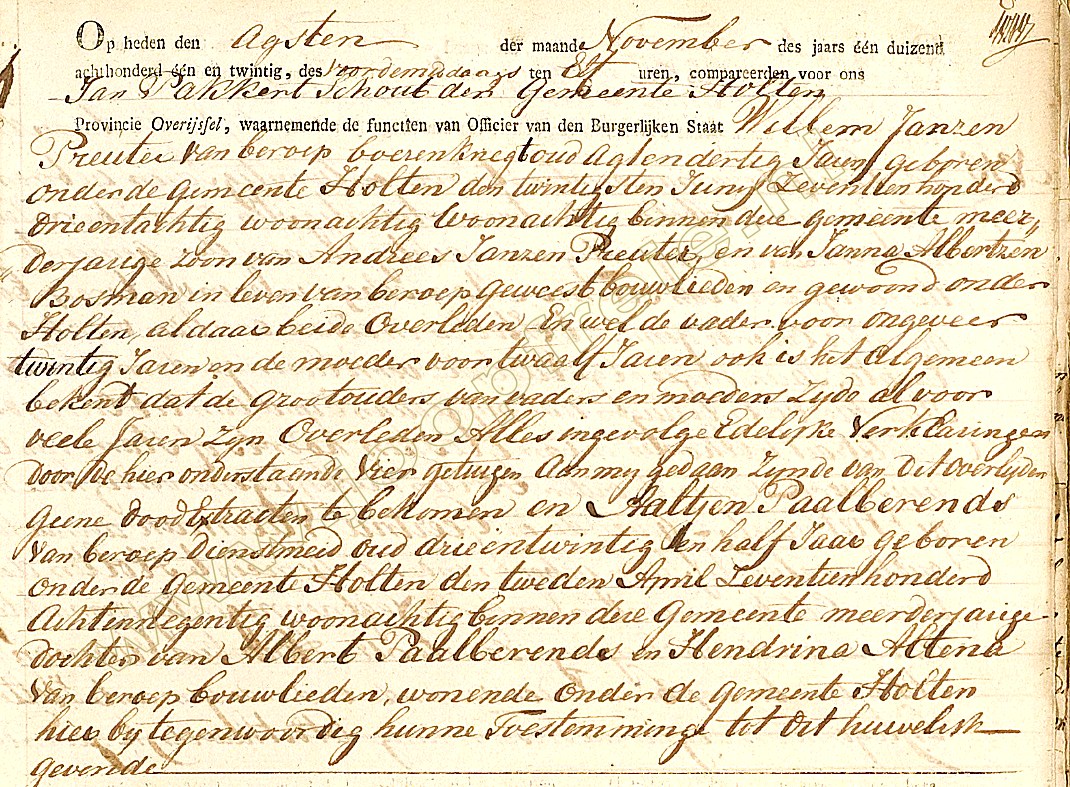 Op heden den Agsten der maand November des jaars één duizend
achthonderd één en twintig, des voordemiddaags ten Elf uren, compareerden voor ons
Jan Pakkert Schout der Gemeente Holten
Provincie Overijssel, waarnemende de functien van Officier van den Burgerlijken Staat Willem Janzen
Preuter van beroep boerenknegt oud Agtendertig Jaren geboren
onder de Gemeente Holten den twintigsten Juny Zeventienhonderd
Drieentachtig woonachtig Woonachtig binnen dese gemeente meer„
derjarige zoon van Andrees Janzen Preuter, en van Janna Albertzen
Bosman in leven van beroep geweest bouwlieden en gewoond onder
Holten, aldaar beide Overleden En wel de vader voor ongeveer
twintig Jaren en de moeder voor twaalf Jaren ook is het algemeen
bekent dat de grootouders van vaders en moeders Zyde al voor
veele Jaren Zyn Overleden Alles ingevolge Edelijke Verklaringen
door de hier onderstaende Vier getuigen Aan my gedaan Zynde van dit overlyden
geene Dood Extracten te bekomen en Aaltjen Paalberends
Van beroep Dienstmeid oud drieentwintig en half Jaar geboren
onder de Gemeente Holten den tweden April Zeventienhonderd
Achtennegentig woonachtig binnen dese Gemeente meerderjarige
dochter van Albert Paalberends en Hendrina Altena
Van beroep bouwlieden, wonende onder de gemeente Holten
hier by tegenwoordig hunne Toestemminge tot dit huwelijk
gevende